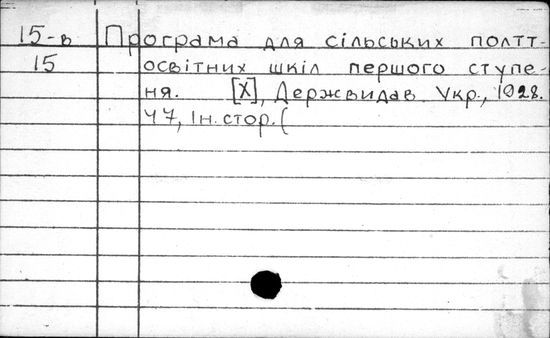 15-в Програма для сільських політ-
15 освітних шкіл першого ступе-
ня. [Х], Держвидав Укр., 1928.
47, 1н. стор. (